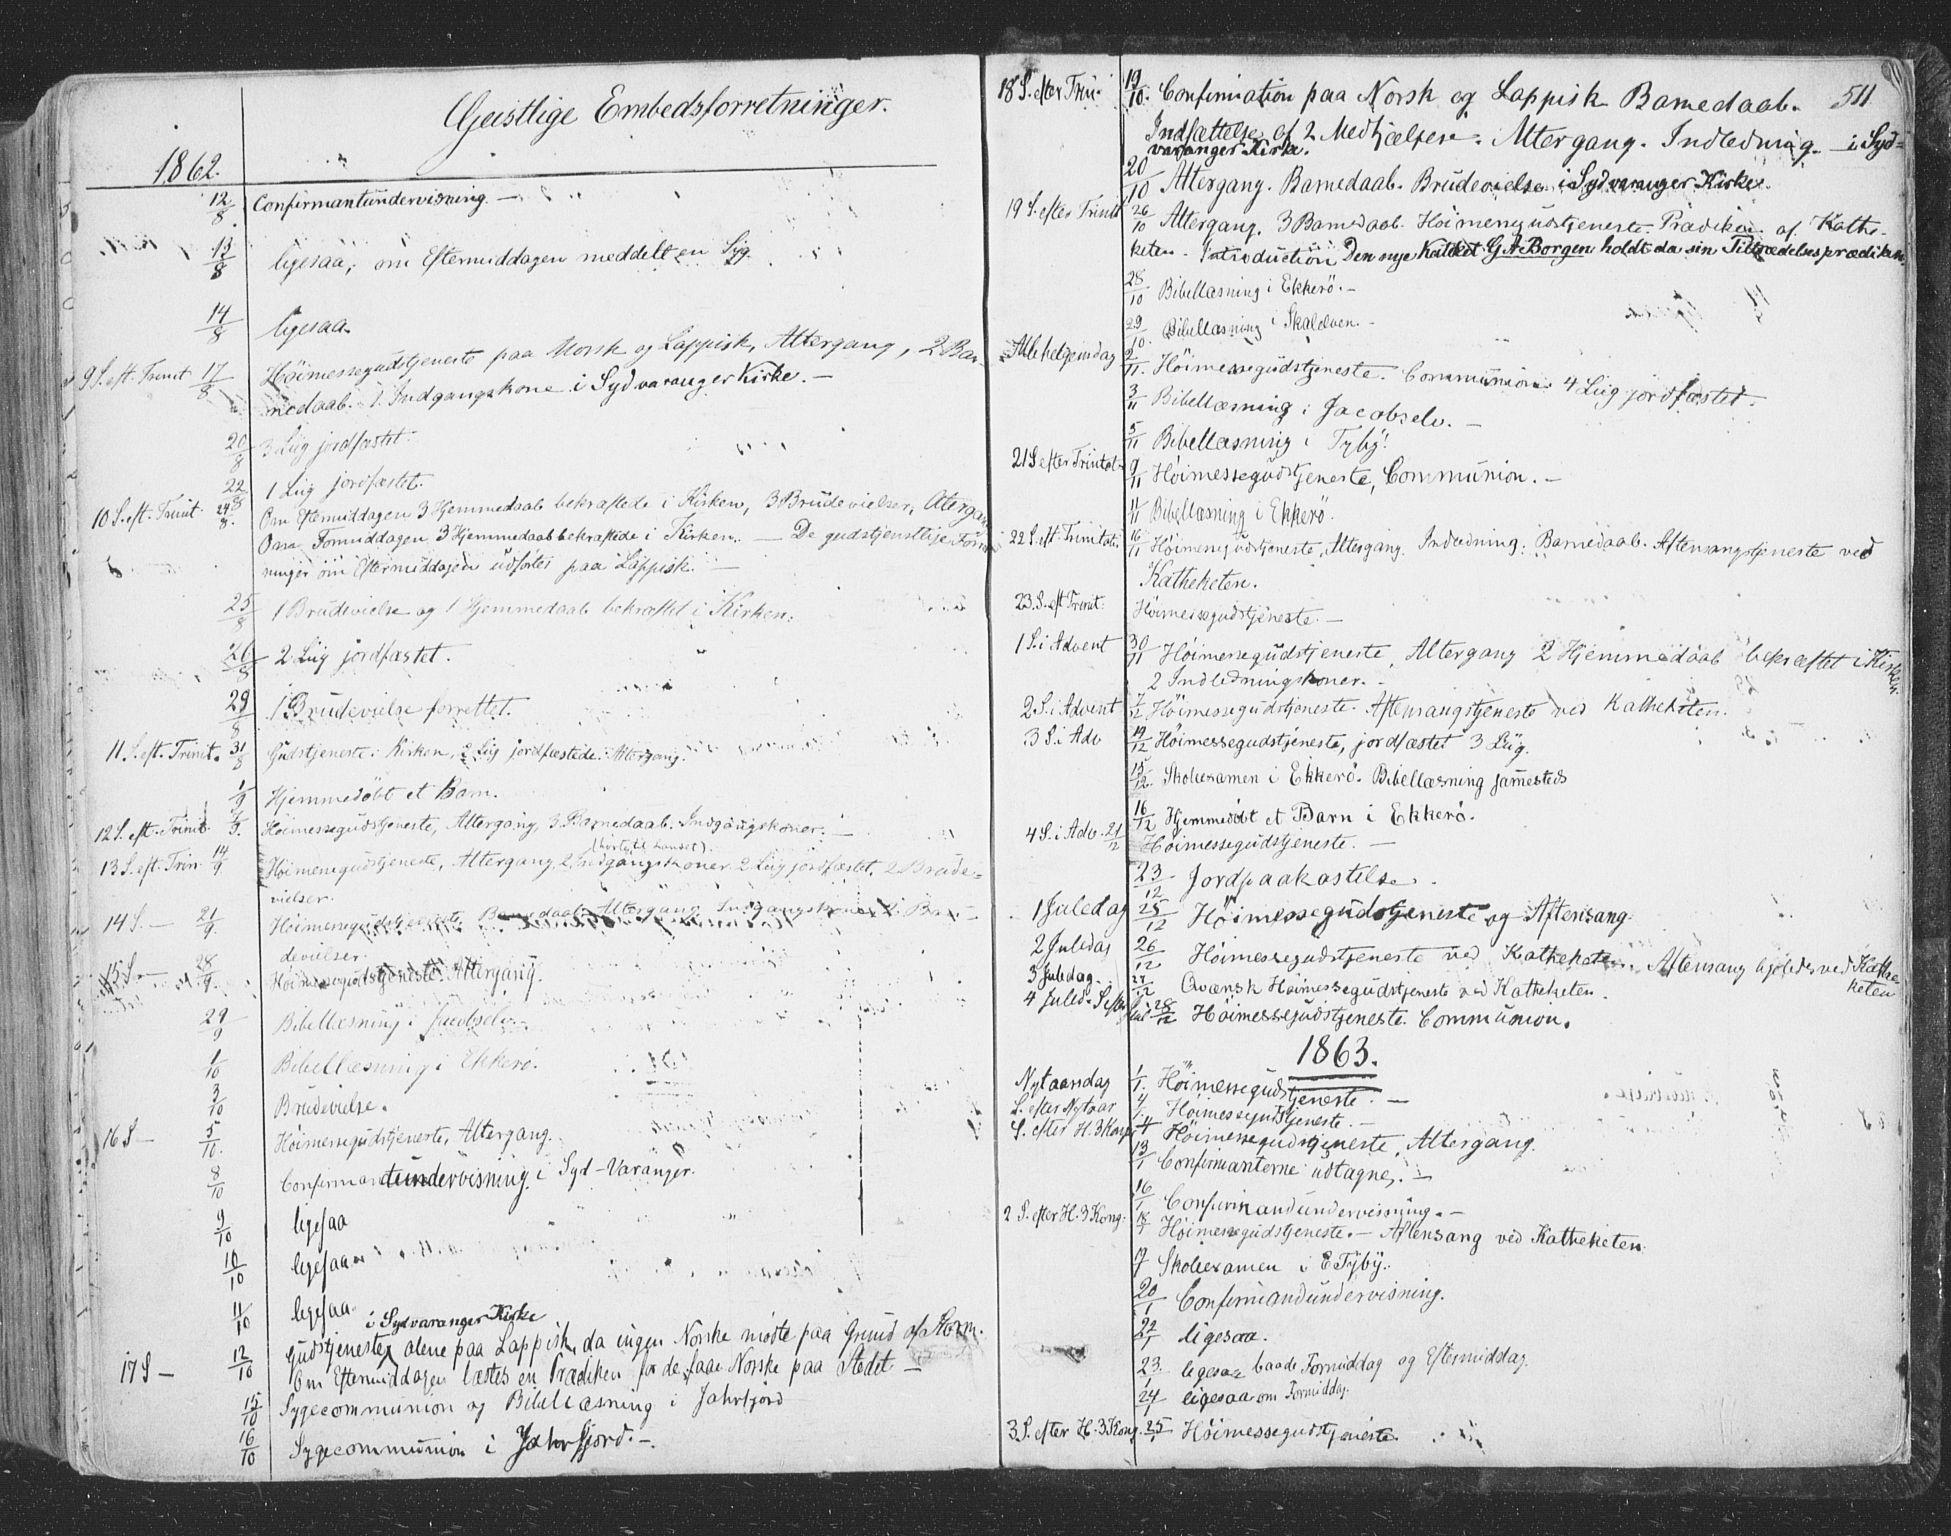 Geistlige Embedsforretninger.
1862.
12/8 Confirmantundervisning. —
13/8 ligesaa, om Eftermiddagen meddelt en Syg
14/8 ligesaa.
9 S. eft. Trinit 17/8 Høimessegudstjeneste paa Norsk og Lappisk, Altergang, 2 Bar-
nedaab. 1 Indgangskone i Sydvaranger Kirke. —
20/8 3 Liig jordfæstet.
22/8 1 Liig jordfæstet.
10 S. eft. Trinit 24/8. Om Eftermiddagen 3 Hjemmedaab bekræftede i Kirken, 3 Brudevielser, Altergang
Om Formiddagen 3 Hjemmedaab bekræftede i Kirken. — De gudstjenstlige Forret-
ninger om Eftermiddagen udførtes paa Lappisk. —
25/8 1 Brudevielse og 1 Hjemmedaab bekræftet i Kirken.
26/8 2 Liig jordfæstet.
29/8 1 Brudevielse forrettet.
11 S. eft. Trinit. 31/8 Gudstjeneste i Kirken, 2 Liig jordfæstede. Altergang.
1/9 Hjemmedøbt et Barn.
12 S. eft. Trinit. 7/9. Høimessegudstjeneste, Altergang, 3 Barnedaab. Indgangskoner. —
13 S. eft. Trin. 14/9 Høimessegudstjeneste, Altergang, 2 Indgangskoner 2 Liig jordfæstet, 2 Brude-
vielser.
14 S. — 21/9. Høimessegudstjeneste Barnedaab Altergang Indgangskoner Bru-
devielser.
15 S — 28/9. Høimessegudstjeneste. Altergang.
29/9 Bibellæsning i Jacobselv.
1/10 Bibellæsning i Ekkerö.
3/10 Brudevielse.
16 S — 5/10. Høimessegudstjeneste, Altergang.
8/10 Confirmandundervisning i Syd-Varanger.
9/10 ligesaa
10/10 ligesaa
11/10 ligesaa
i Sydvaranger Kirke
17 S — 12/10 Gudstjeneste alene paa Lappisk, da ingen Norske mødte paa Grund af Storm.
Om Eftermiddagen læstes en Prædiken for de faae Norske paa Stedet —
15/10 Sygecommunion og Bibellæsning i Jahrfjord
16/10 Sygecommunion i Jahrfjord. —
511
18 S. efter Trin. 19/10. Confirmation paa Norsk og Lappisk Barnedaab.
Indsættelse af 2 Medhjælpere. Altergang. Indledning. — i Syd-
varanger Kirke.
20/10 Altergang. Barnedaab. Brudevielse i Sydvaranger Kirke.
19 S. efter Trinit 26/10 Altergang. 3 Barnedaab. Höimessegudstjeneste. Prædiken af Kathe-
keten. Introduction Den nye Kateket G. A. Borgen holdt da sin Tiltrædelsesprædiken.
28/10 Bibellæsning i Ekkerö. —
29/10. Bibellæsning i Skalelven. —
Allehelgensdag 2/11. Höimessegudstjeneste. Communion. 4 Liig jordfæstet.
3/11 Bibellæsning i Jacobselv. —
5/11 Bibellæsning i Tyby.
21 S efter Trinitat. 9/11 Höimessegudstjeneste, Communion. —
11/11 Bibellæsning i Ekkerö.
22 S. eft. Trinitat. 16/11 Höimessegudstjeneste, Altergang. Indledning. Barnedaab. Aftensangstjeneste ved
Katheketen.
23. S. eft Trinit: Höimessegudstjeneste. —
1 S. i Advent 30/11 Höimessegudstjeneste, Altergang 2 Hjemmedaab bekræftet i Kirken
2 Indledningskoner. —
2. S. i Advent 7/12 Höimessegudstjeneste. Aftensangstjeneste ved Katheketen.
3 S. i Adv 14/12 Höimessegudstjeneste, jordfæstet 3 Liig.
15/12. Skoleexamen i Ekkerö. Bibellæsning sammesteds
16/12 Hjemmedöbt et Barn i Ekkerö.
4 S. i Adv. 21/12 Höimessegudstjeneste. —
23/12 Jordpaakastelse.
1 Juledag 25/12 Höimessegudstjeneste og Aftensang.
2 Juledag 26/12 Höimessegudstjeneste ved Katheketen. Aftensang ved Kathe-
keten
3 Juledag 27/12 Qvænsk Höimessegudstjeneste ved Katheketen.
4 Juled. S. efter Jul 28/12 Höimessegudstjeneste. Communion.
1863.
Nytaarsdag 1/1. Höimessegudstjeneste. —
S. efter Nytaar 4/1. Höimessegudstjeneste. —
S. efter H. 3 Kong. 11/1 Höimessegudstjeneste, Altergang.
13/1 Confirmanterne udtagne. —
16/1 Confirmandundervisning. —
2 S. efter H. 3 Kong. 18/1 Höimessegudstjeneste. — Aftensang ved Katheketen.
Skoleexamen i Tyby.
20/1 Confirmandundervisning.
22/1 ligesaa.
23/1 ligesaa baade Formiddag og Eftermiddag.
24/1 ligesaa om Formiddag.
3 S. efter H. 3 Kong. 25/1 Höimessegudstjeneste.